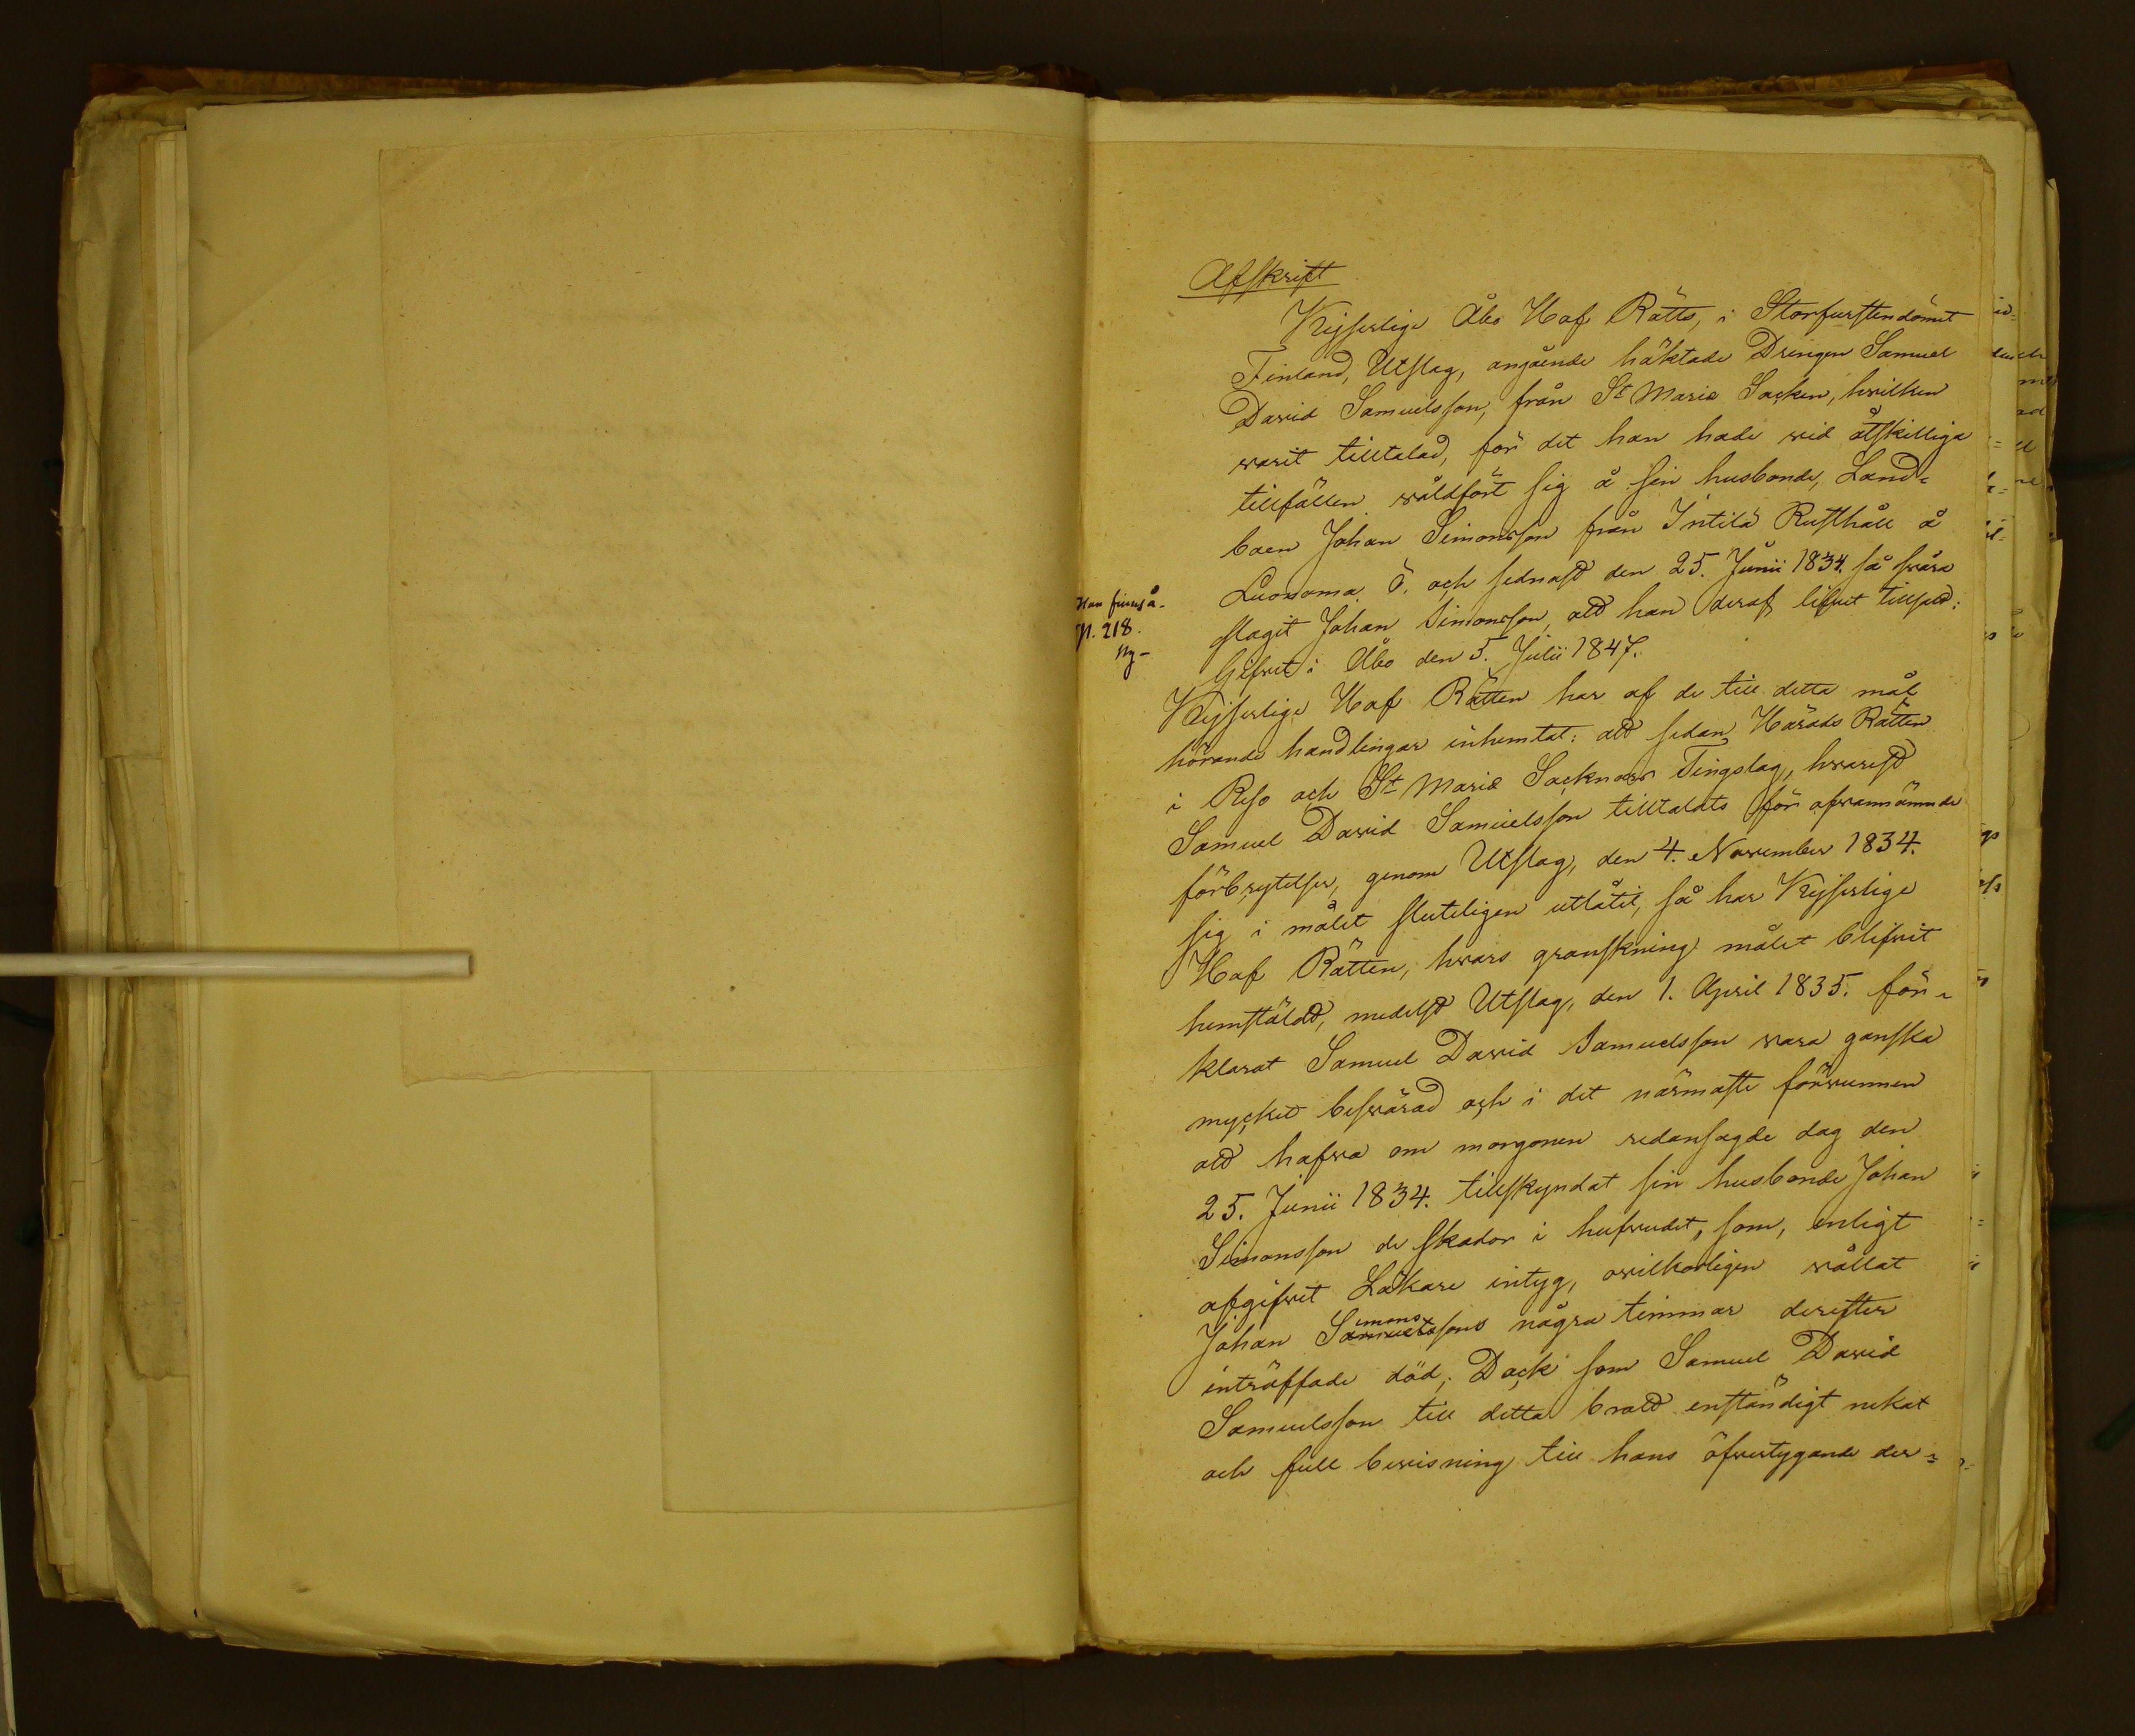 Afskrift
Kejserlige Åbo Hof Rätts, i Storfurstendömet
Finland, Utslag, angående häktade Drengen Samuel
David Samuelsson, från St Marie Socken, hvilken
warit tilltalad, för det han hade wid åtskilliga
tillfällen wåldfört sig å sin husbonde, Land-
boen Johan Simonsson från Intilä Rusthåll å
Luonoma Ö. och sednast den 25. Junii 1834. så svåra
slagit Johan Simonsson, att han deraf lifvet tillsatt:
Gifvet i Åbo den 5. Julii 1847.
Han finnes å.
p. 218.
Ny-
Kejserlige Hof Rätten har af de till detta mål
hörande handlingar inhemtat: att sedan Härads Rätten
i Reso och St Marie Socknars Tingslag, hwarest
Samuel David Samuelsson tilltalats för ofwannämnde
förbrytelser, genom Utslag, den 4. November 1834.
sig i målet sluteligen utlåtit, så har Kejserlige
Hof Rätten, hwars granskning målet blifvit
hemstäldt, medelst Utslag, den 1. April 1835. för-
klarat Samuel David Samuelsson wara ganska
mycket beswärad och i det närmaste förwunnen
att hafwa om morgonen redansagde dag den
25. Junii 1834. tillskyndat sin husbonde Johan
Simonsson de skador i hufvudet, som, enligt
afgifvet Läkare intyg, owilkorligen wållat
Johan Simonssons några timmar derefter
inträffade död; Dock som Samuel David
Samuelsson till detta brott enständigt nekat
och full bewisning till hans öfvertygande der-